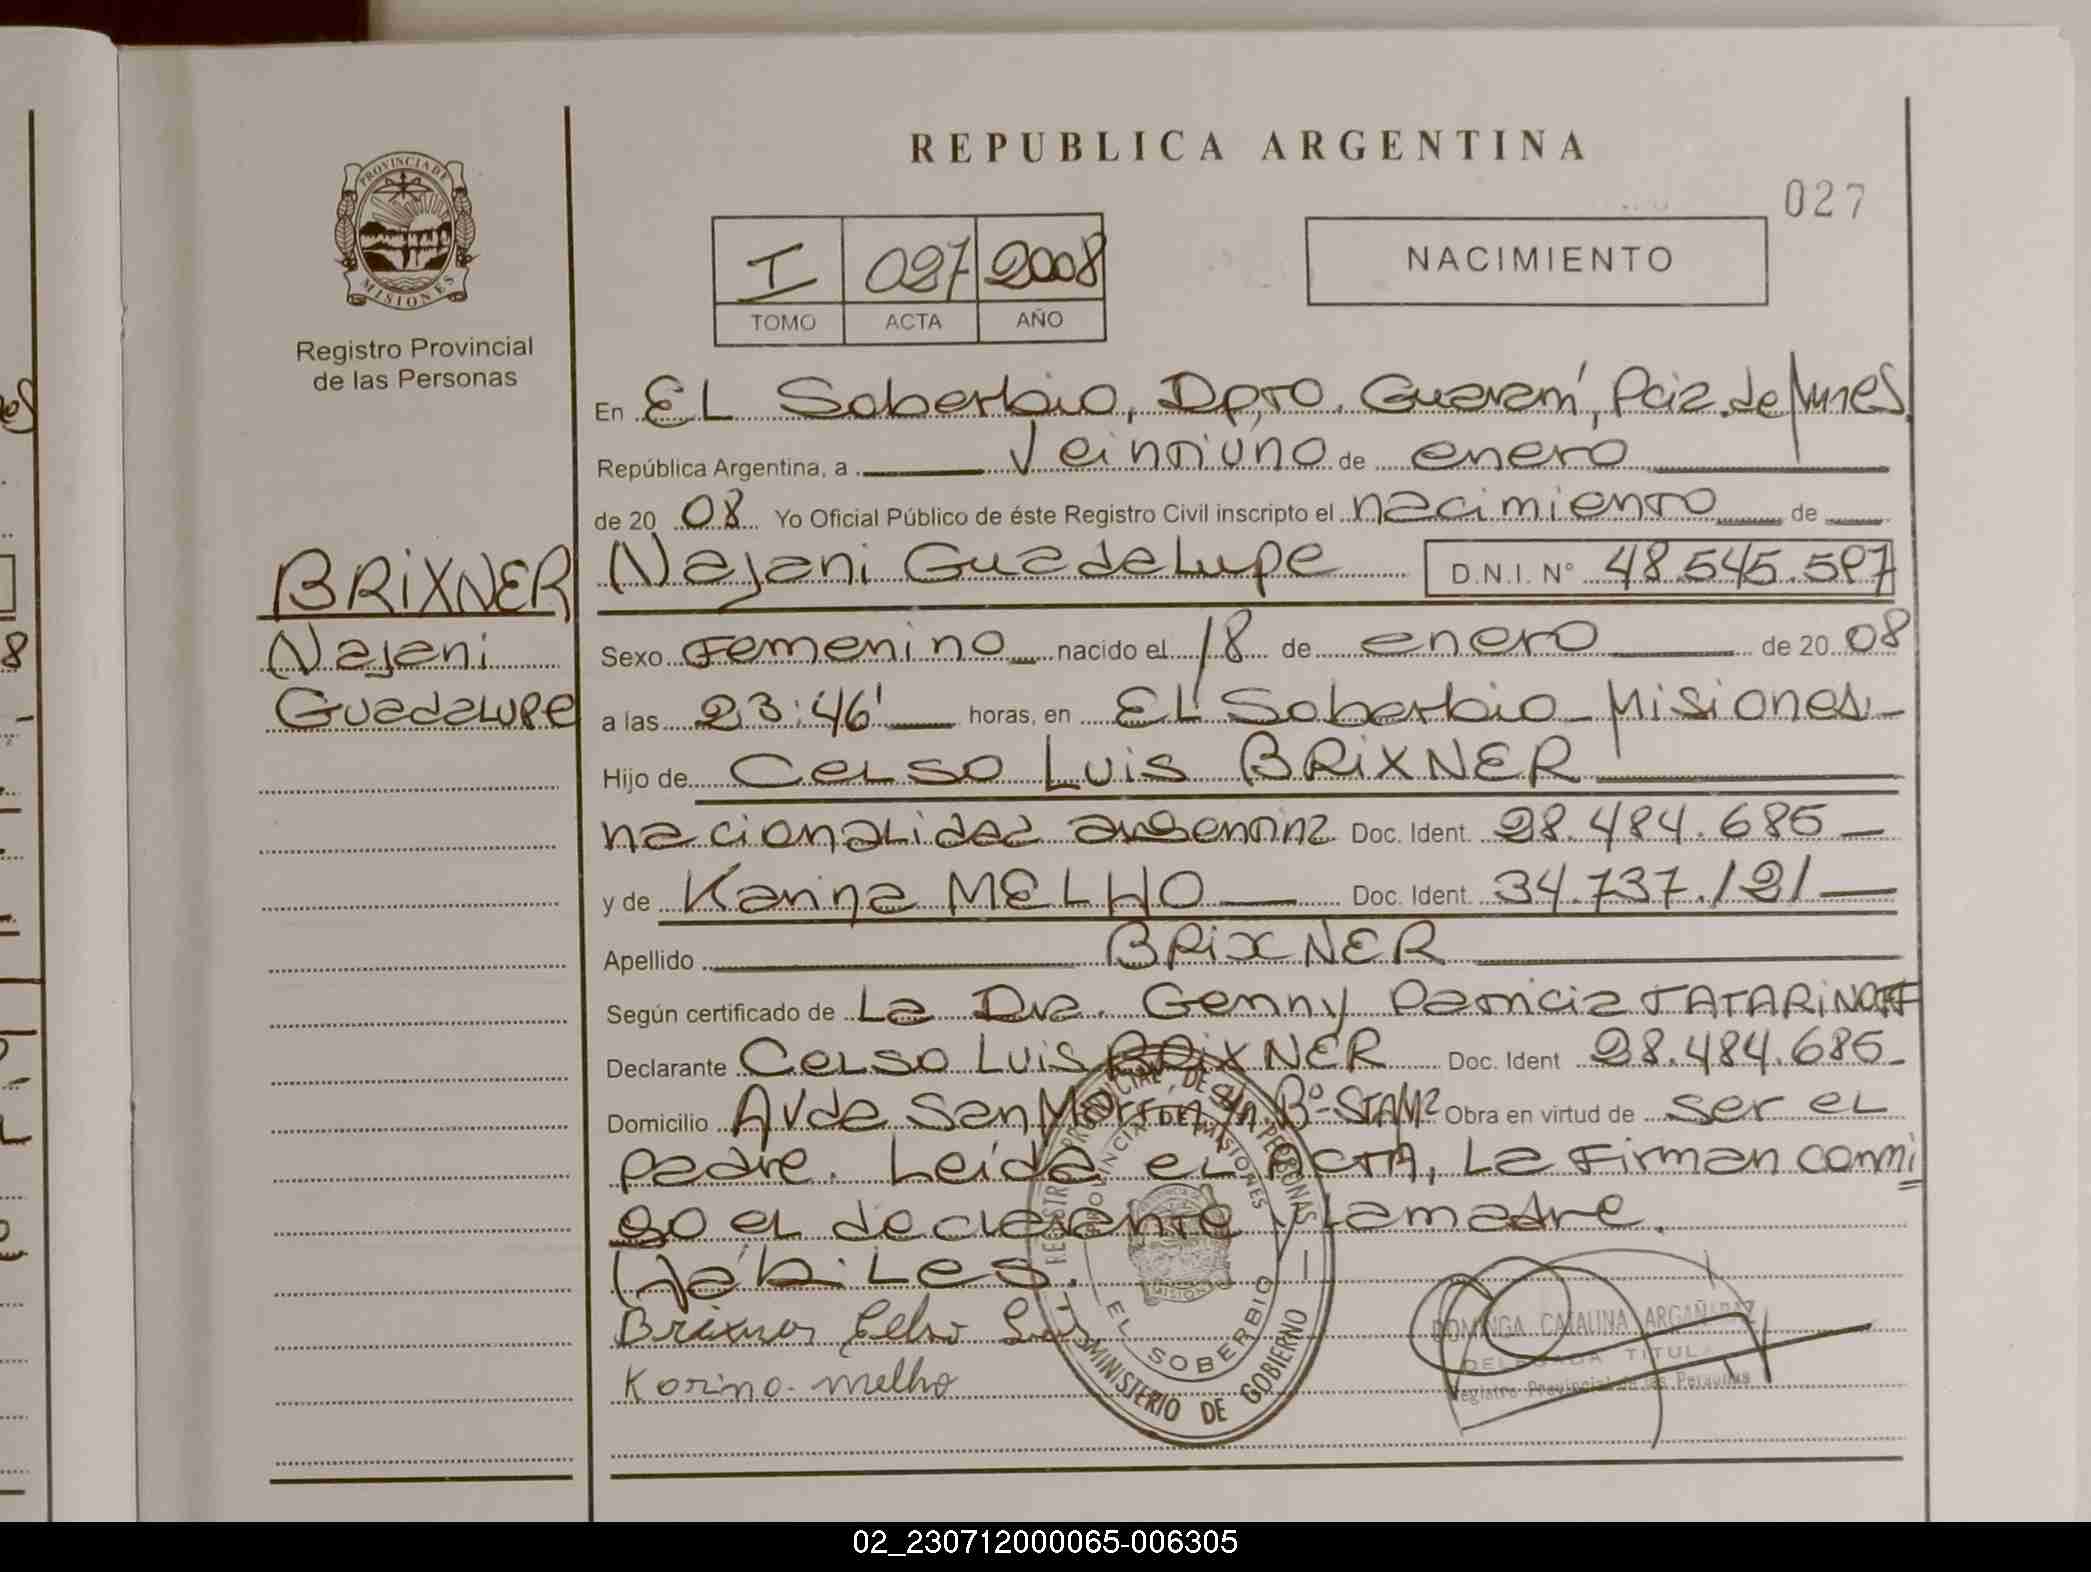 REPUBLICA ARGENTINA
027
PROVINCIA DE
MISIONES
Registro Provincial
de las Personas
I 027 2008
TOMO ACTA AÑO
NACIMIENTO
En EL Soberbio, Dpto. Guaraní, Pcia. de Mnes.
República Argentina, a Veintiuno de enero
de 20 08 Yo Oficial Público de éste Registro Civil inscripto el nacimiento de
BRIXNER
Najani
Guadalupe
Najani Guadalupe D.N.I. N° 48.545.597
Sexo Femenino nacido el 18 de enero de 20 08
a las 23:46' horas, en El Soberbio - Misiones.-
Hijo de Celso Luis BRIXNER
nacionalidad argentina Doc. Ident. 28.484.685
y de Karina MELHO Doc. Ident. 34.737.121
Apellido BRIXNER
Según certificado de La Dra. Genny Patricia TATARINOFF
Declarante Celso Luis BRIXNER Doc. Ident 28.484.685
Domicilio Avda San Martín S/n Bº- Obra en virtud de ser el
padre. Leída el ACTA, La Firman conmi
go el declarante y la madre.
Hábiles.
Brixner Celso Luis
Karina melho
REGISTRO PROVINCIAL DE LAS PERSONAS
PROVINCIA DE MISIONES
MISIONES
EL SOBERBIO
MINISTERIO DE GOBIERNO
DOMINGA CATALINA ARGAÑARAZ
DELEGADA TITULAR
Registro Provincial de las Personas
02_230712000065-006305